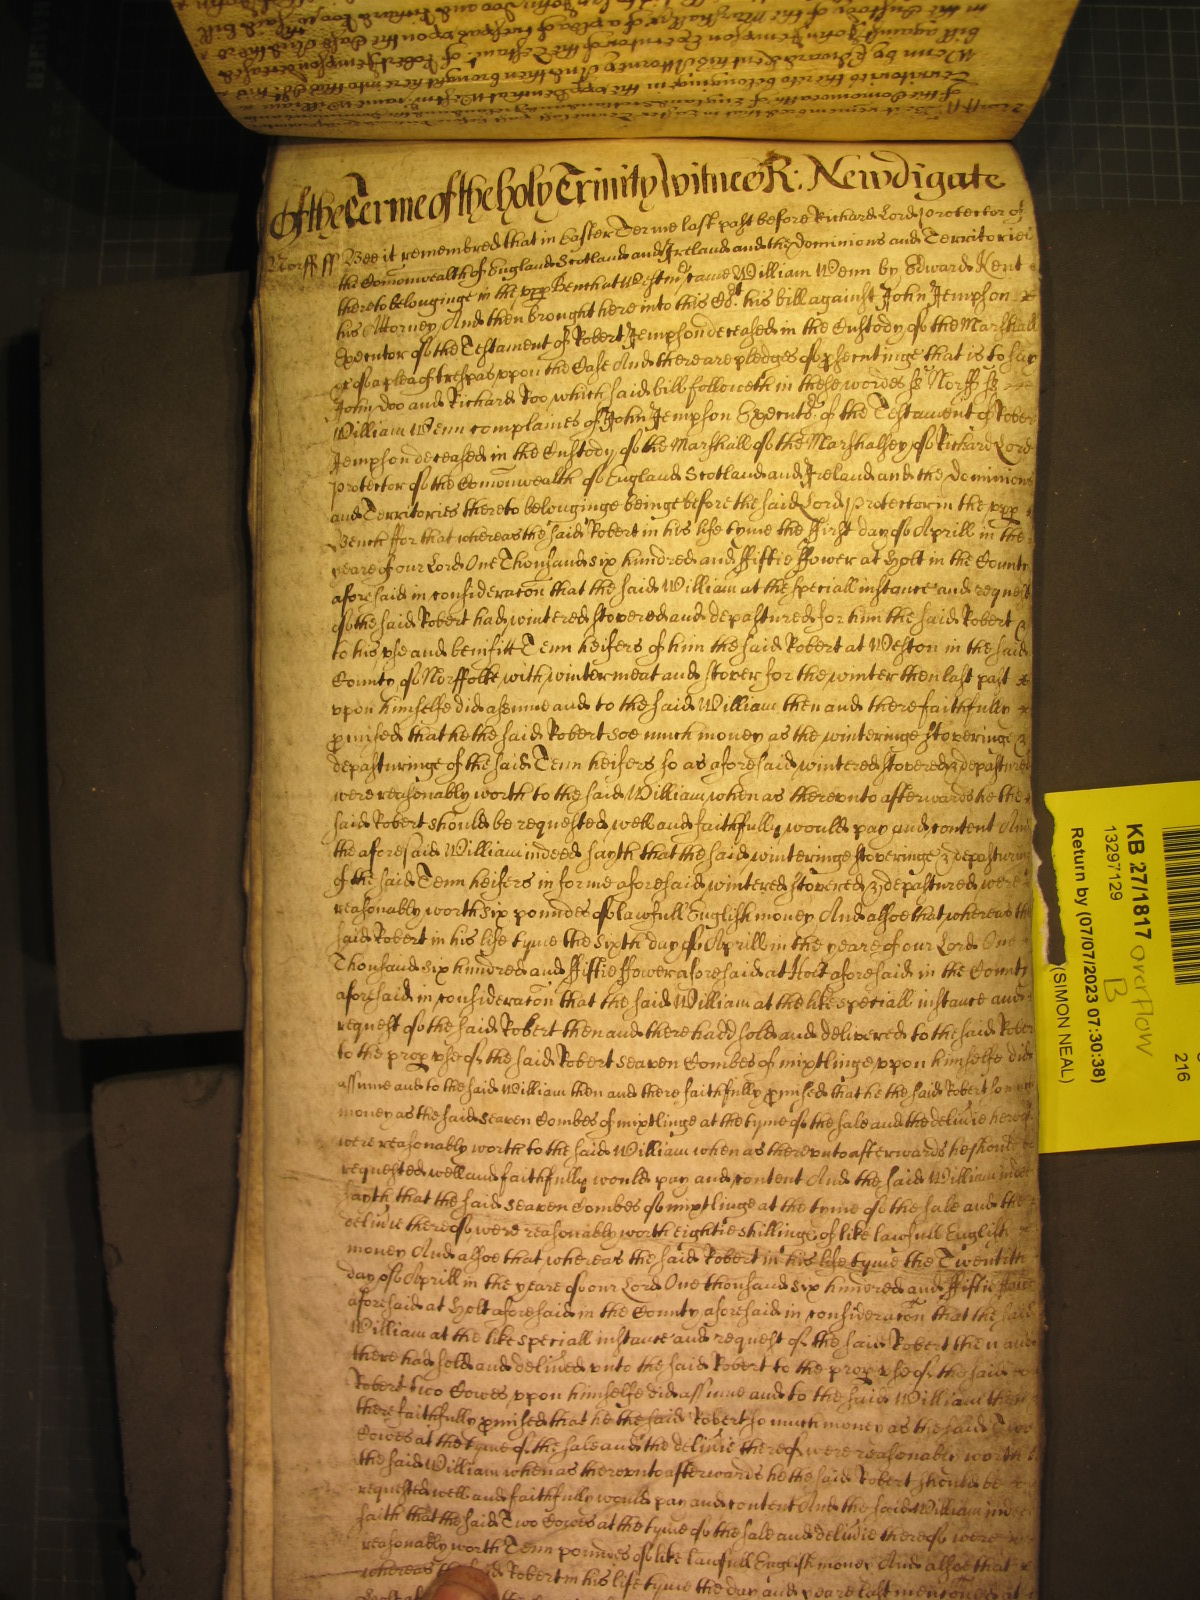 Of the Terme of the holy Trinity Witnes R: Newdigate
Norff ss Bee it remembred that in Easter Terme last past before Richard Lord Protector of
the Comonwealth of England Scotland and Ireland and the dominions and Territories
thereto belonginge in the upp Bench at Westmr came William Wenn by Edward Kent
his Attorney And then brought here into this Co:rt his bill against John Jempson
Executor of the Testament of Robert Jempson deceased in the Custody of the Marshall
&c of a plea of trespas uppon the Case And there are pledges of psecutinge that is to say
John Doo and Richard Roo which said bill followeth in these wordes ss Norff ss
William Wenn complaines of John Jempson Execut:r of the Testament of Robert
Jempson deceased in the Custody of the Marshall of the Marshalsey of Richard Lord
Protector of the Comonwealth of England Scotland and Ireland and the Dominions
and Territories thereto belonginge beinge before the said Lord Protector in the upp
Bench ffor that whereas the said Robert in his life tyme the ffirst day of Aprill in the
yeare of our Lord One Thousand six hundred and ffiftie ffower at Holt in the County
aforesaid in consideracon that the said William at the speciall instance and request
of the said Robert had wintered stovered and depastured for him the said Robert
to his use and benifitt Tenn heifers of him the said Robert at Weston in the said
County of Norffolke with wintermeat and stover for the winter then last past
upon himselfe did assume and to the said William then and there faithfully
pmised that he the said Robert soe much money as the winteringe stoveringe &
depasturinge of the said Tenn heifers so as aforesaid wintered stovered & depastured
were reasonably worth to the said William when as thereunto afterwards he the
said Robert should be requested well and faithfully would pay and content And
the aforesaid William indeed sayth that the said winteringe stoveringe & depasturing
of the said Tenn heifers in forme aforesaid wintered stovered & depastured were
reasonably worth six poundes of lawfull English money And alsoe that whereas the
said Robert in his life tyme the sixth day of Aprill in the yeare of our Lord One
Thousand six hundred and ffiftie ffower aforesaid at Holt aforesaid in the County
aforesaid in consideracon that the said William at the like speciall instance and
request of the said Robert then and there had sold and delivered to the said Robert
to the prop use of the said Robert seaven Combes of mixtlinge uppon himselfe did
assume and to the said William then and there faithfully pmised that he the said Robert so
money as the said seaven Combes of mixtlinge at the tyme of the sale and the delivie hereof
were reasonably worth to the said William when as thereunto afterwards he should be
requested well and faithfully would pay and content And the said William indeed
sayth that the said seaven Combes of mixtlinge at the tyme of the sale and the
delivie thereof were reasonably worth Eightie shillings of like lawfull English
money And alsoe that whereas the said Robert in his life tyme the Twentith
day of Aprill in the yeare of our Lord One thousand six hundred and ffiftie ffower
aforesaid at Holt aforesaid in the County aforesaid in consideracon that the said
William at the like speciall instance and request of the said Robert then and
there had sold and delived unto the said Robert to the prop use of the said
Robert two Cowes uppon himselfe did assume and to the said William then
there faithfully pmised that he the said Robert so much money as the said Two
Cowes at the tyme of the sale and the delivie thereof were reasonably worth
the said William when as thereunto afterwards he the said Robert should be
requested well and faithfully would pay and content And the said William indeed
saith that the said Two Cowes at the tyme of the sale and delivie thereof were
reasonably worth Tenn poundes of like lawfull English money And alsoe that
whereas the said Robert in his life tyme the day and yeare last mentioned at
KB 27/1817 overflow
13297129 B
Return by (07/07/2023 07:30:38)
(SIMON NEAL)
216